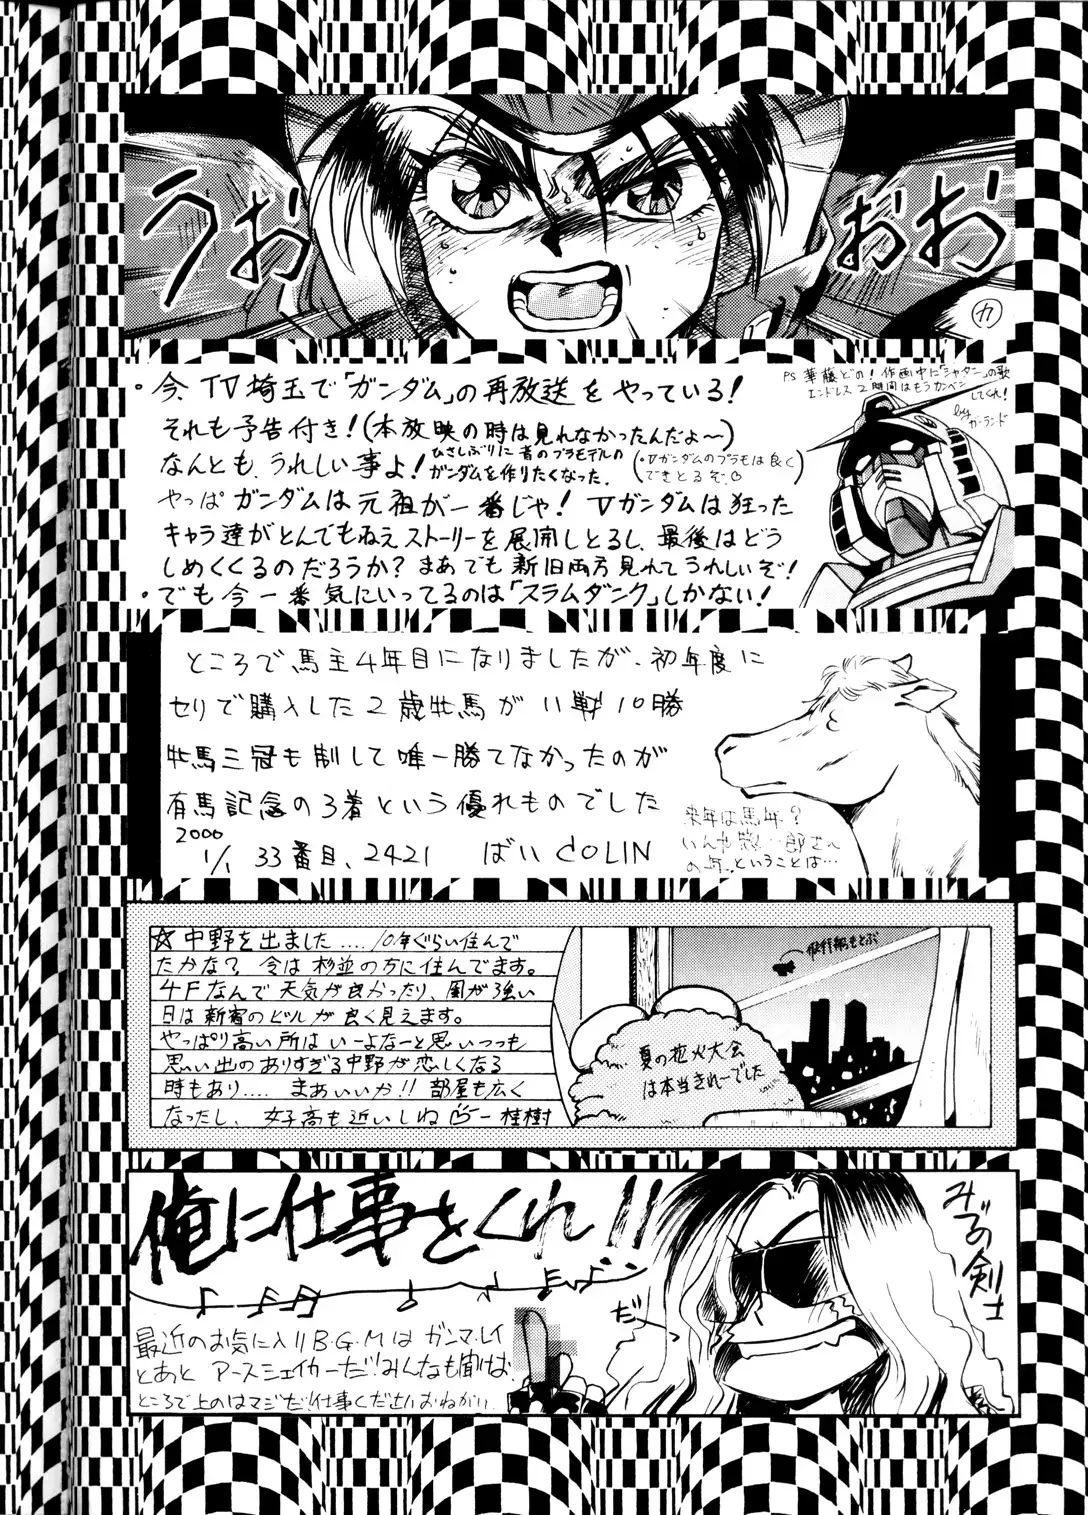 うおおおお
カ
・今、TV埼玉で「ガンダム」の再放送をやっている！
それも予告付き！(本放映の時は見れなかったんだよ～)
なんとも、うれしい事よ！ひさしぶりに昔のプラモデルのガンダムを作りたくなった。
(・Vガンダムのプラモは良くできとるぞ。)
やっぱガンダムは元祖が一番じゃ！Vガンダムは狂った
キャラ達がとんでもねえストーリーを展開しとるし、最後はどう
しめくくるのだろうか？まあでも新旧両方見れてうれしいぞ！
・でも今一番気にいってるのは「スラムダンク」しかない！
PS 華藤どの！作画中に「シャダニー」の歌
エンドレス2時間はもうカンベン
してくれ！
by ガーランド
ところで馬主4年目になりましたが、初年度に
セリで購入した2歳牝馬が11戦10勝
牝馬三冠も制して唯一勝てなかったのが
有馬記念の3着という優れものでした
2000
1/1 33番目、2421 ばい COLIN
来年は馬年？
いんや
の年。ということは…
☆中野を出ました....10年ぐらい住んで
たかな？今は杉並の方に住んでます。
4Fなんで天気が良かったり、風が強い
日は新宿のビルが良く見えます。
やっぱり高い所はいーよなーと思いつつも
思い出のありすぎる中野が恋しくなる
時もあり.... まあいいか!!部屋も広く
なったし、女子高も近いしね 桂樹
夏の花火大会
は本当きれーでした
俺に仕事をくれ!!
みどの剣士
だ～
最近のお気に入りB・G・Mはガンマ・レイ
とあとアースシェイカーだ!みんなも聞けば。
ところで上のはマジだ!仕事ください。おねがい。